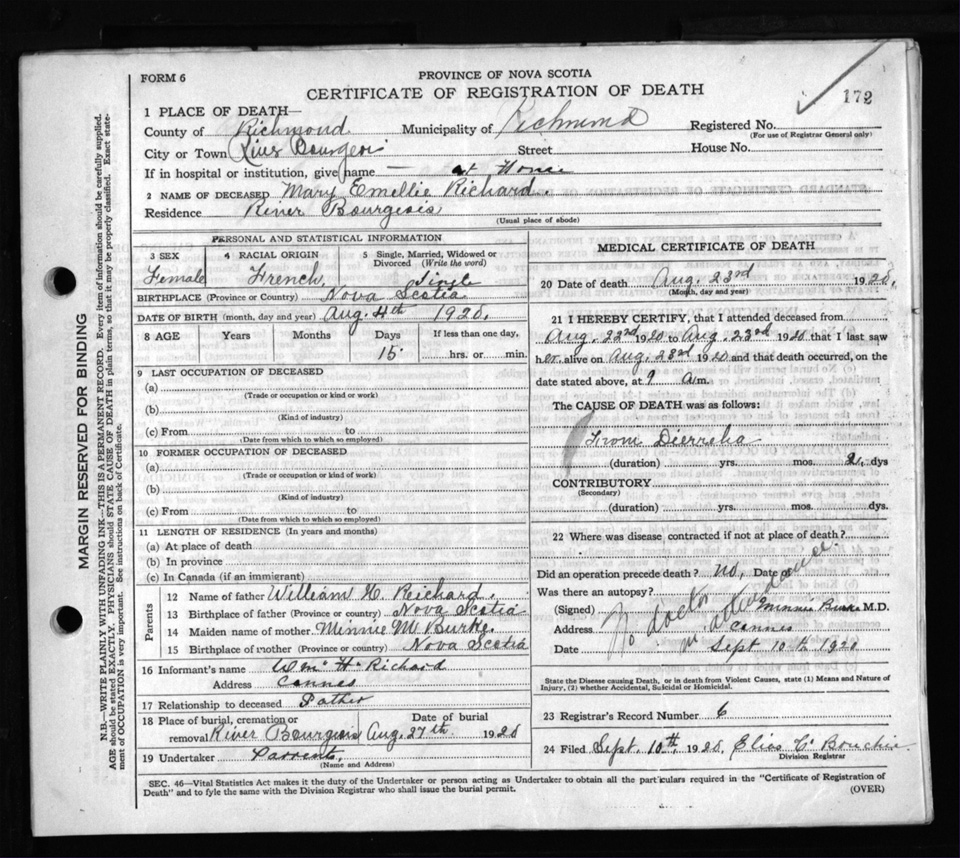 FORM 6
PROVINCE OF NOVA SCOTIA
CERTIFICATE OF REGISTRATION OF DEATH
172
1 PLACE OF DEATH—
County of Richmond Municipality of Richmond Registered No.
(For use of Registrar General only)
City or Town River Bourgeois Street House No.
If in hospital or institution, give name — at Home
2 NAME OF DECEASED Mary Emellie Richard.
Residence River Bourgeois
(Usual place of abode)
PERSONAL AND STATISTICAL INFORMATION
3 SEX 4 RACIAL ORIGIN 5 Single, Married, Widowed or Divorced (Write the word)
Female French Single
BIRTHPLACE (Province or Country) Nova Scotia
DATE OF BIRTH (month, day and year) Aug. 4th 1920.
8 AGE Years Months Days If less than one day,
15 hrs. or min.
9 LAST OCCUPATION OF DECEASED
(a)
(Trade or occupation or kind or work)
(b)
(Kind of industry)
(c) From to
(Date from which to which so employed)
10 FORMER OCCUPATION OF DECEASED
(a)
(Trade or occupation or kind of work)
(b)
(Kind of industry)
(c) From to
(Date from which to which so employed)
11 LENGTH OF RESIDENCE (In years and months)
(a) At place of death
(b) In province
(c) In Canada (if an immigrant)
Parents
12 Name of father William H. Richard.
13 Birthplace of father (Province or country) Nova Scotia
14 Maiden name of mother Minnie M Burke.
15 Birthplace of mother (Province or country) Nova Scotia
16 Informant's name Wm. H. Richard
Address Cannes
17 Relationship to deceased Father
18 Place of burial, cremation or removal River Bourgeois Date of burial Aug. 27th. 1920
19 Undertaker Parrents
(Name and Address)
MEDICAL CERTIFICATE OF DEATH
20 Date of death Aug. 23rd 1920.
(Month, day and year)
21 I HEREBY CERTIFY, that I attended deceased from
Aug. 22nd 1920 to Aug. 23rd 1920 that I last saw
her alive on Aug. 23rd 1920 and that death occurred, on the
date stated above, at 9 a.m.
The CAUSE OF DEATH was as follows:
From Dierreha
(duration) yrs. mos. 2. dys
CONTRIBUTORY
(Secondary)
(duration) yrs. mos. dys.
22 Where was disease contracted if not at place of death?
Did an operation precede death? No, Date of
Was there an autopsy?
No doctor in attendance
(Signed) Minnie Burke M.D.
Address Cannes
Date Sept. 10th 1920
State the Disease causing Death, or in death from Violent Causes, state (1) Means and Nature
of Injury, (2) whether Accidental, Suicidal or Homicidal.
23 Registrar's Record Number 6
24 Filed Sept. 10th 1920, Elias C. Bouchie
Division Registrar
SEC. 46—Vital Statistics Act makes it the duty of the Undertaker or person acting as Undertaker to obtain all the particulars required in the "Certificate of Registration of
Death" and to fyle the same with the Division Registrar who shall issue the burial permit.
(OVER)
MARGIN RESERVED FOR BINDING
N.B.—WRITE PLAINLY WITH UNFADING INK—THIS IS A PERMANENT RECORD. Every item of information should be carefully supplied.
AGE should be stated EXACTLY. PHYSICIANS should STATE CAUSE OF DEATH in plain terms, so that it may be properly classified. Exact state-
ment of OCCUPATION is very important. See instructions on back of Certificate.